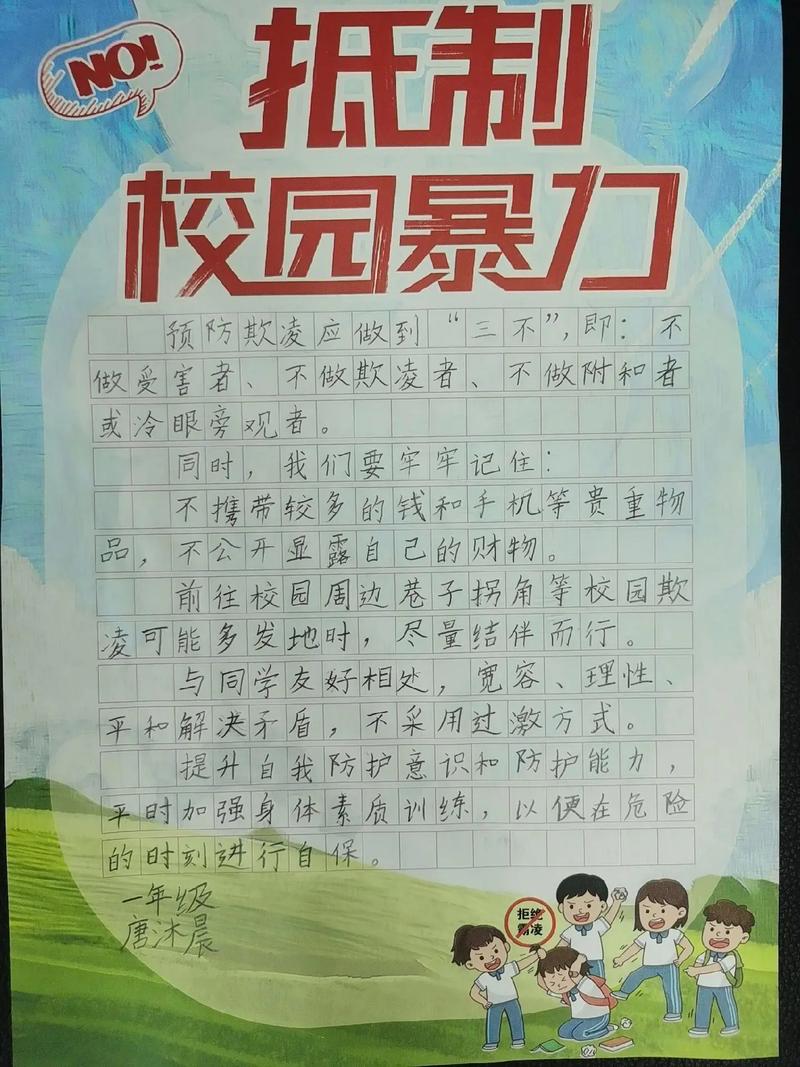 NO!
抵制
校园暴力
预防欺凌应做到“三不”，即：不
做受害者、不做欺凌者、不做附和者
或冷眼旁观者。
同时，我们要牢牢记住：
不携带较多的钱和手机等贵重物
品，不公开显露自己的财物。
前往校园周边巷子拐角等校园欺
凌可能多发地时，尽量结伴而行。
与同学友好相处，宽容、理性、
平和解决矛盾，不采用过激方式。
提升自我防护意识和防护能力，
平时加强身体素质训练，以便在危险
的时刻进行自保。
一年级
唐沐晨
拒绝
霸凌